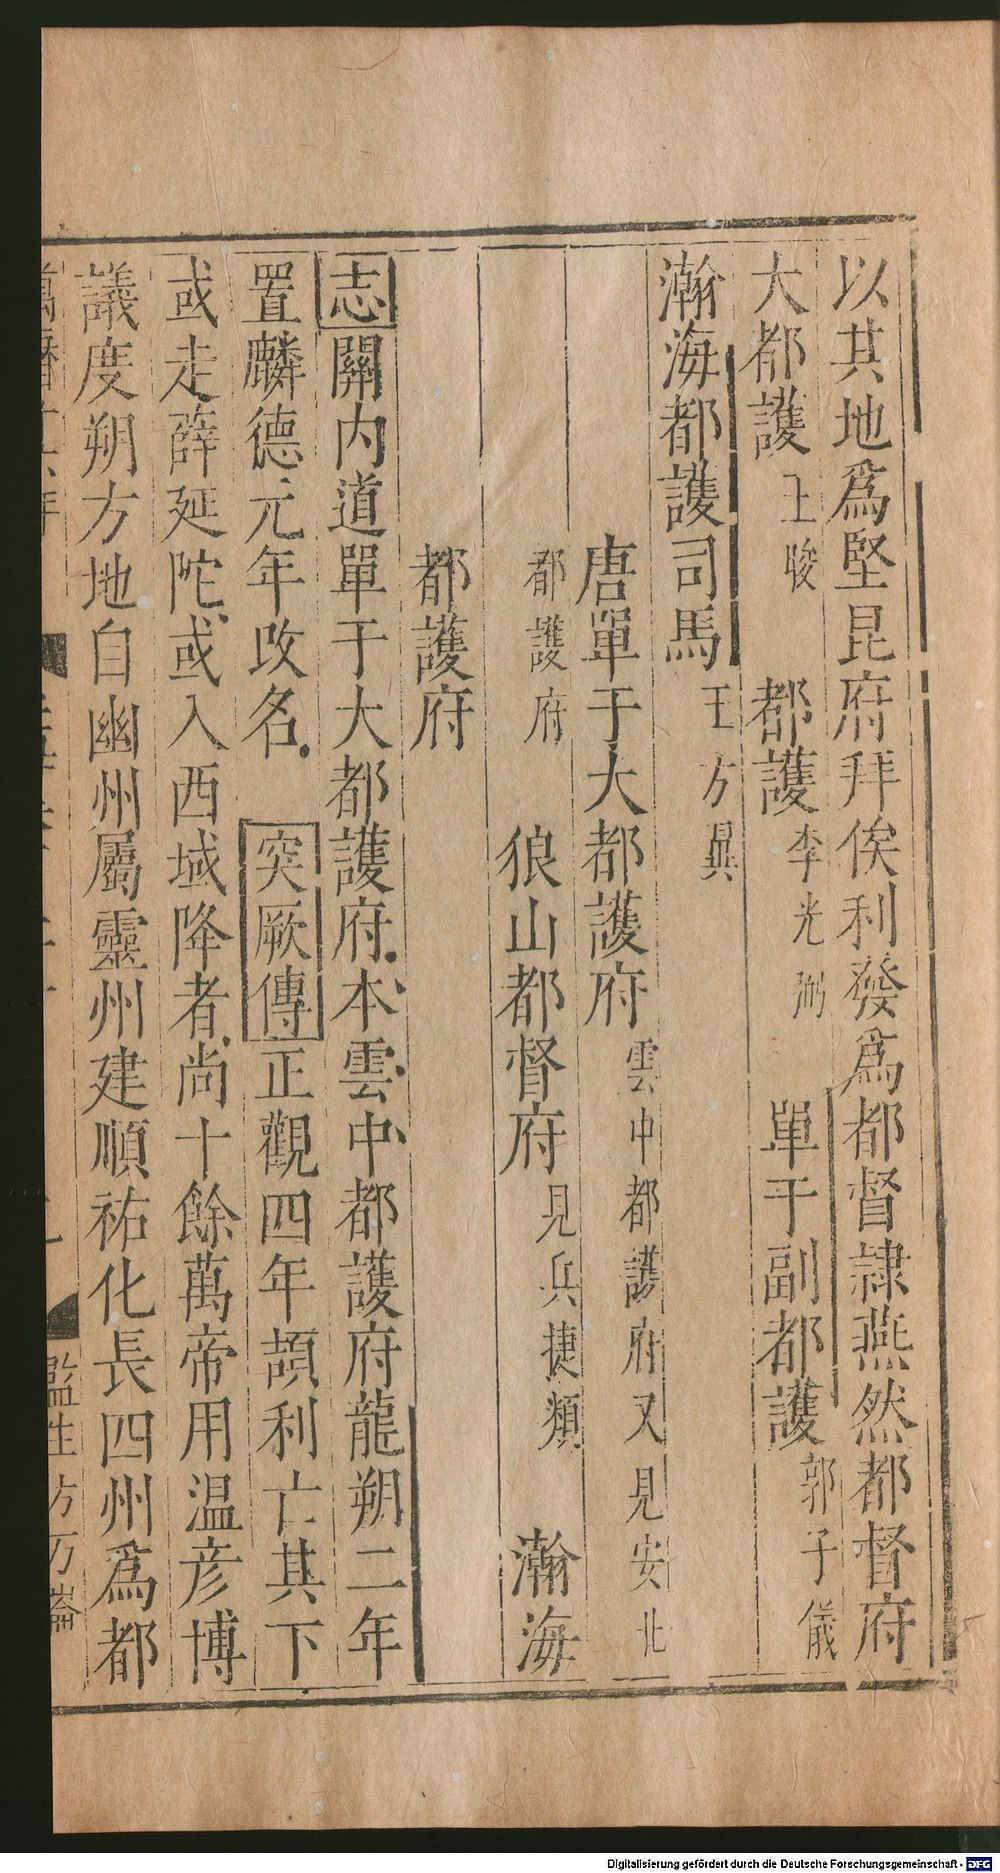 以其地爲堅昆府拜俟利發爲都督隷燕然都督府
大都護王晙 都護李光弼 單于副都護郭子儀
瀚海都護司馬王方翼
唐單于大都護府雲中都護府又見安北
都護府 狼山都督府見兵捷類 瀚海
都護府
志關内道單于大都護府本雲中都護府龍朔二年
置麟德元年改名 突厥傳正觀四年頡利亡其下
或走薛延陀或入西域降者尚十餘萬帝用温彦博
議度朔方地自幽州屬靈州建順祐化長四州爲都
監生方万崙
Digitalisierung gefördert durch die Deutsche Forschungsgemeinschaft - DFG